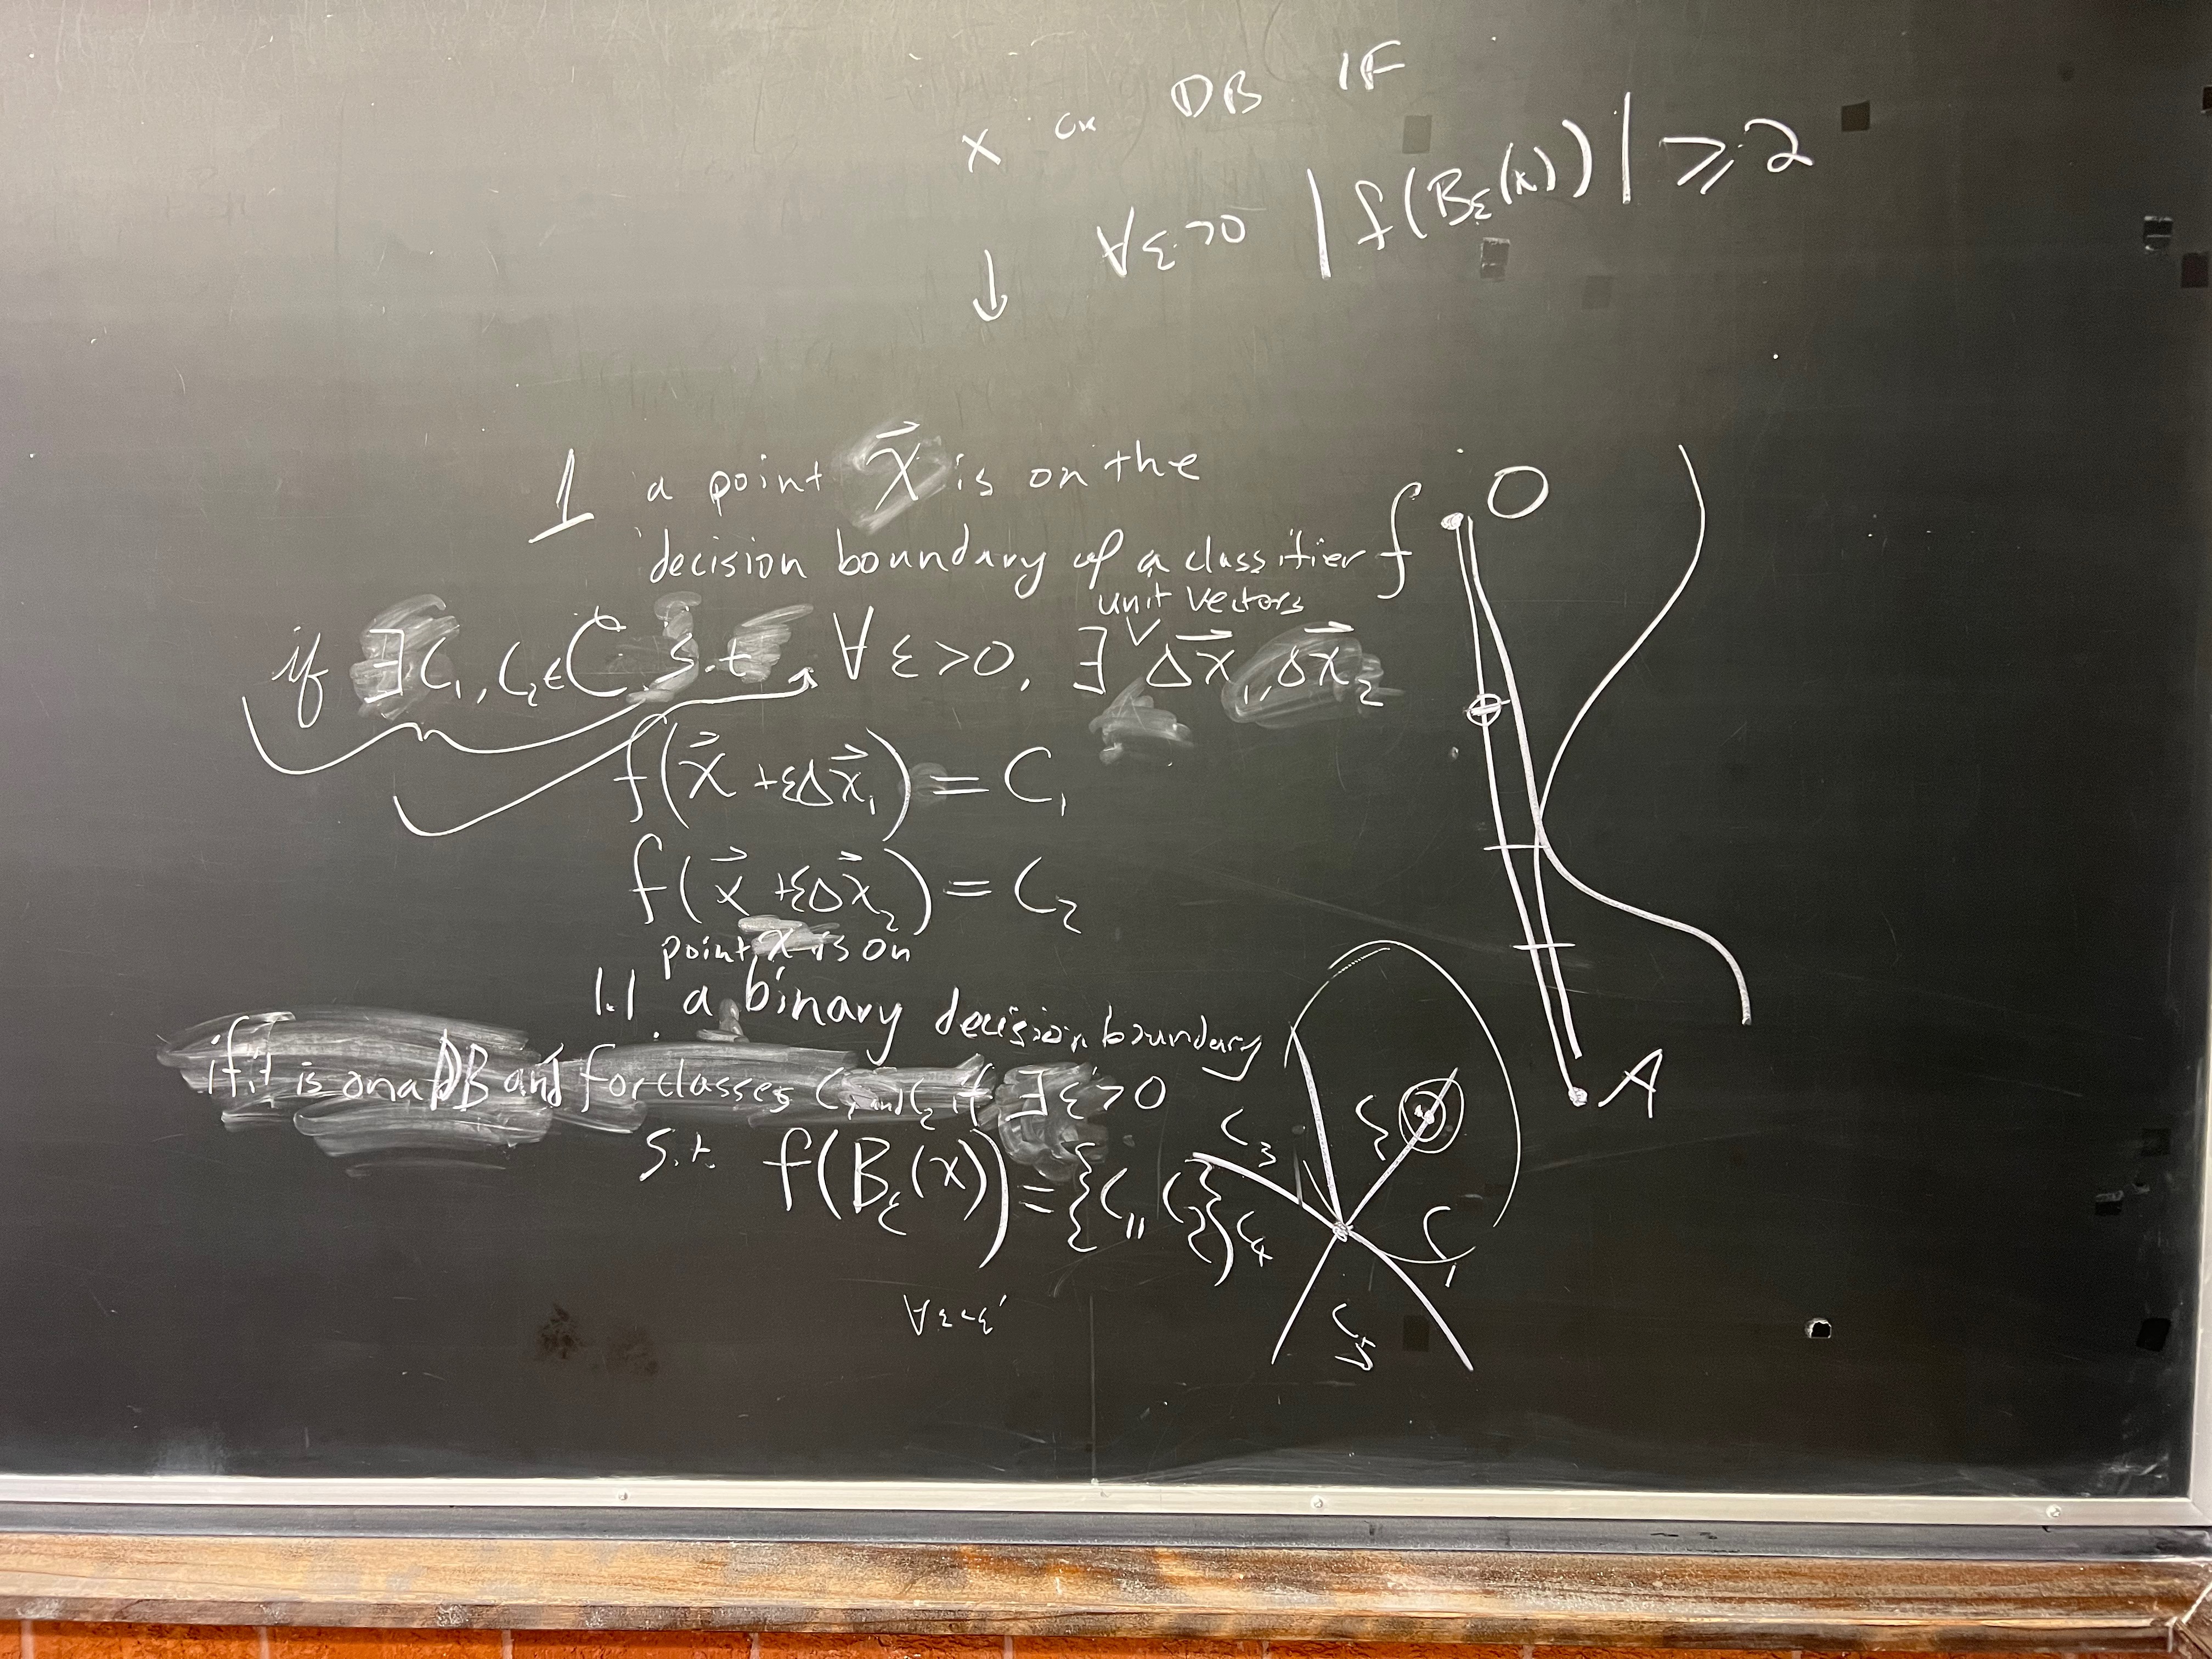 x on DB IF
∀ε>0 |f(Bε(x))| ≥ 2
↓
1 a point x⃗ is on the
decision boundary of a classifier f
unit vectors
if ∃C₁, C₂ ∈ C s.t ∀ε>0, ∃ Δx⃗₁, Δx⃗₂
f(x⃗ + εΔx⃗₁) = C₁
f(x⃗ + εΔx⃗₂) = C₂
point x is on
1.1. a binary decision boundary
if it is on a DB and for classes C₁ and C₂ if ∃ε'>0
s.t. f(Bε(x)) = {C₁, C₂}
∀ε<ε'
O
A
C₃
C₄
C₁
C₅